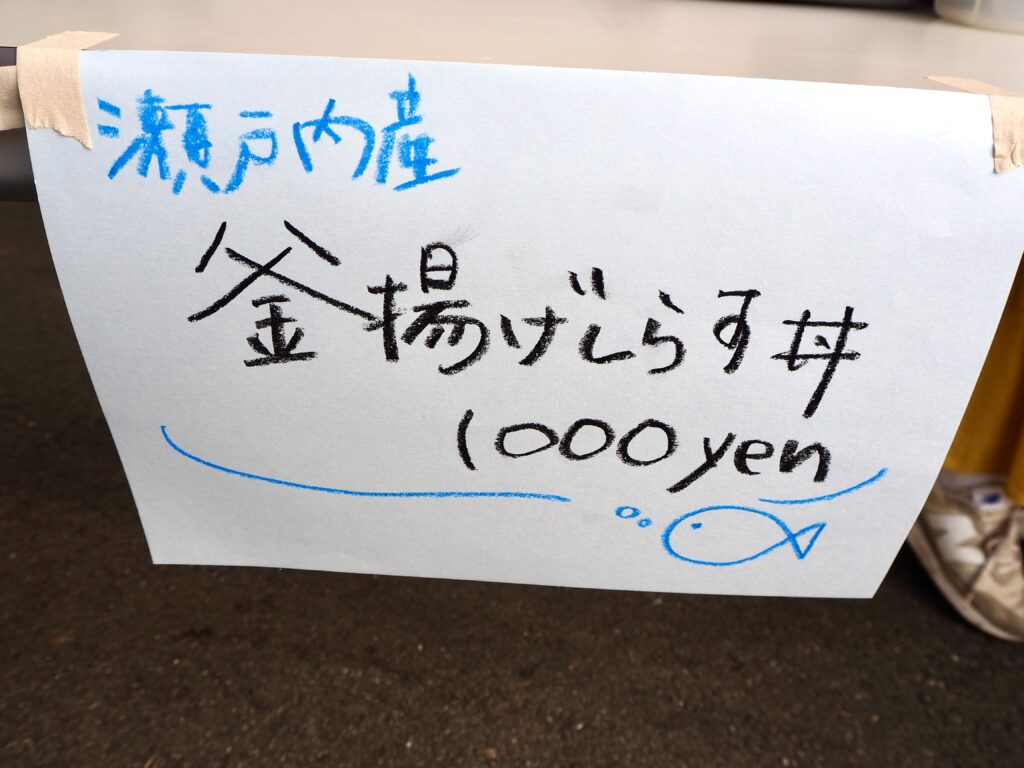 瀬戸内産
釜揚げしらす丼
1000yen